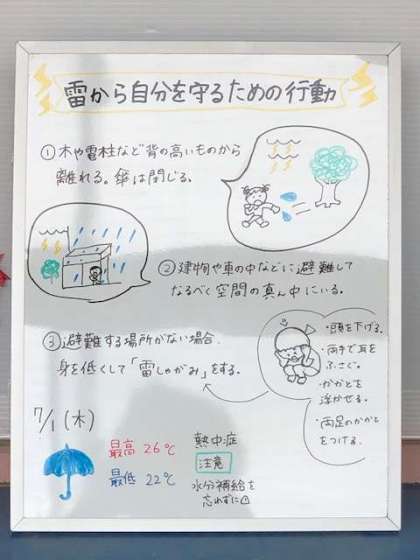 雷から自分を守るための行動
①木や電柱など背の高いものから
離れる。傘は閉じる。
②建物や車の中などに避難して
なるべく空間の真ん中にいる。
③避難する場所がない場合
身を低くして「雷しゃがみ」をする。
・頭を下げる。
・両手で耳を
ふさぐ。
・かかとを
浮かせる。
・両足のかかと
をつける。
7/1(木)
最高 26℃
最低 22℃
熱中症
注意
水分補給を
忘れずに